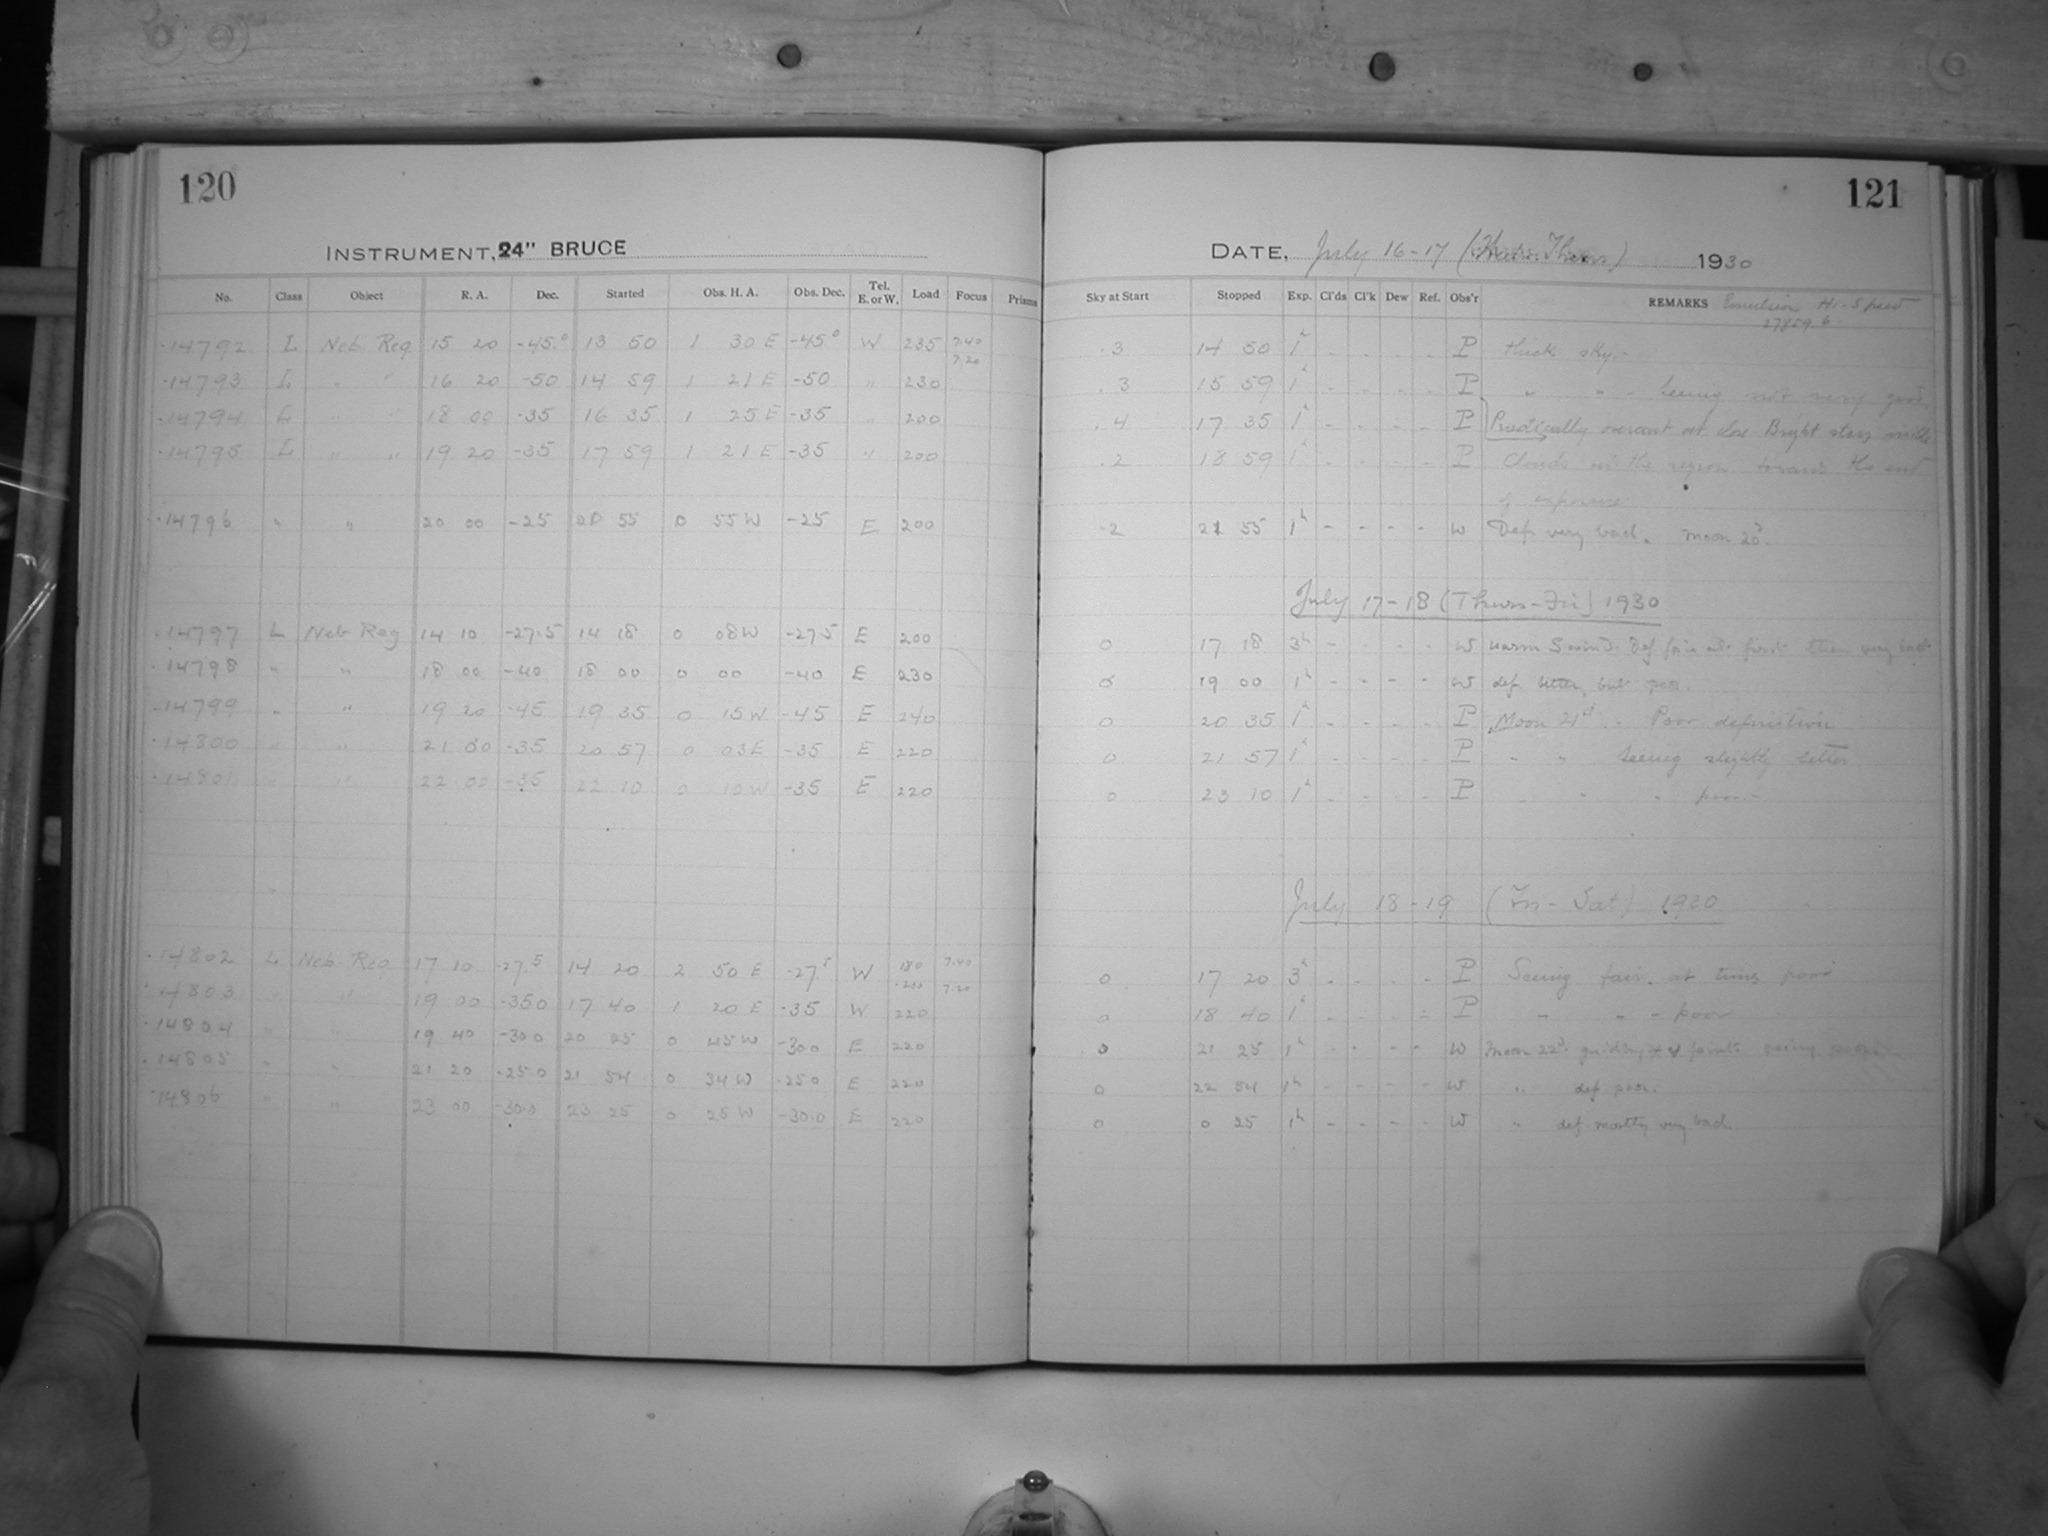 120
INSTRUMENT, 24" BRUCE
No. Class Object R. A. Dec. Started Obs. H. A. Obs. Dec. Tel. E. or W. Load Focus Prisms
14792 L Neb. Reg 15 20 -45.° 13 50 1 30 E -45° W 235 7.40 7.20
14793 L " " 16 20 -50 14 59 1 21 E -50 " 230
14794 L " " 18 00 -35 16 35 1 25 E -35 " 200
14795 L " " 19 20 -35 17 59 1 21 E -35 " 200
14796 " " 20 00 -25 20 55 0 55 W -25 E 200
14797 L Neb Reg 14 10 -27.5 14 18 0 08 W -27.5 E 200
14798 " " 18 00 -40 18 00 0 00 -40 E 230
14799 " " 19 20 -45 19 35 0 15 W -45 E 240
14800 " " 21 00 -35 20 57 0 03 E -35 E 220
14801 " " 22 00 -35 22 10 0 10 W -35 E 220
14802 L Neb. Reg 17 10 -27.5 14 20 2 50 E -27.5 W 180 7.40 7.20
14803 " " 19 00 -350 17 40 1 20 E -35 W 220
14804 " " 19 40 -300 20 25 0 45 W -300 E 220
14805 " " 21 20 -250 21 54 0 34 W -250 E 220
14806 " " 23 00 -30.0 23 25 0 25 W -30.0 E 220
121
DATE, July 16-17 (Thurs) 1930
Sky at Start Stopped Exp. Cl'ds Cl'k Dew Ref. Obs'r REMARKS Emulsion Hi-Speed
27859.6
.3 14 50 1h - - - - P thick sky.-
.3 15 59 1h - - - - P " " - Seeing not very good
.4 17 35 1h - - - - P Practically overcast at close Bright stars
.2 18 59 1h - - - - P Clouds in the region toward the end
of exposure
.2 21 55 1h - - - - W Def. very bad. moon 20d.
July 17-18 (Thurs-Fri) 1930
0 17 18 3h - - - - W warm S wind. Def fair at first then very bad
0 19 00 1h - - - - W def. better, but poor.
0 20 35 1h - - - - P Moon 21d - Poor definition
0 21 57 1h - - - - P " " Seeing slightly better
0 23 10 1h - - - - P " " " poor -
July 18-19 (Fri-Sat) 1930
0 17 20 3h - - - - P Seeing fair. at times poor
0 18 40 1h - - - - P " " - poor
0 21 25 1h - - - - W Moon 22d. guiding faint
0 22 54 1h - - - - W " def poor.
0 0 25 1h - - - - W " def mostly very bad.